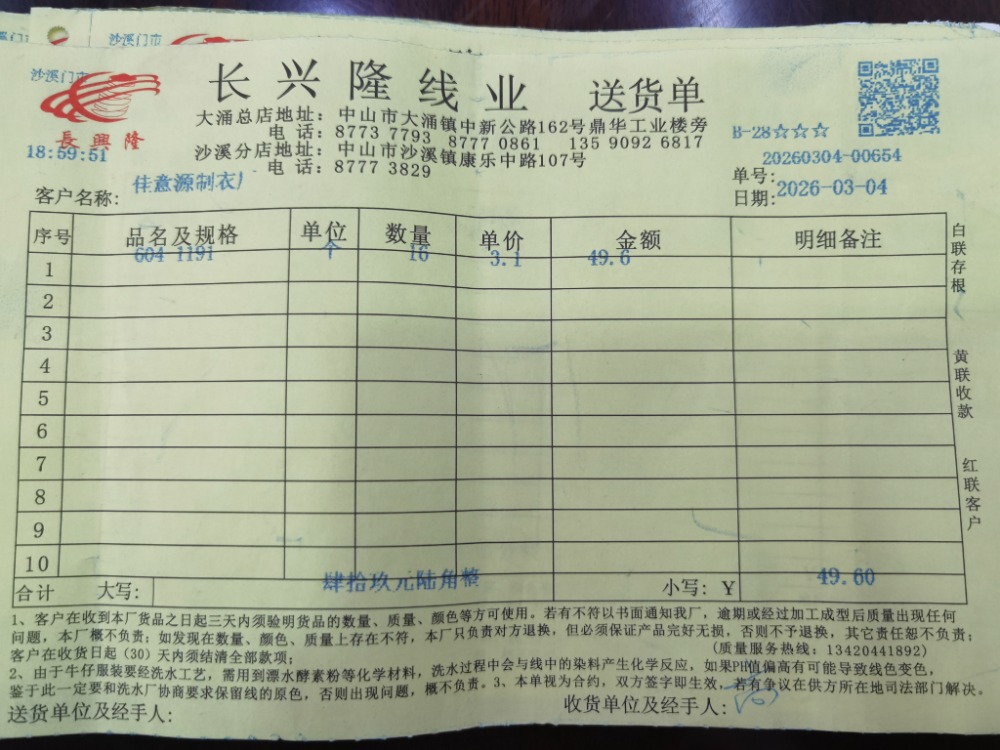 沙溪门市
沙溪门市
長興隆
18:59:51
长兴隆线业 送货单
大涌总店地址：中山市大涌镇中新公路162号鼎华工业楼旁
电话：8773 7793 8777 0861 135 9092 6817
沙溪分店地址：中山市沙溪镇康乐中路107号
电话：8777 3829
B-28☆☆☆
单号：20260304-00654
日期：2026-03-04
客户名称：佳意源制衣厂
序号 品名及规格 单位 数量 单价 金额 明细备注
1 604 1191 个 16 3.1 49.6
2
3
4
5
6
7
8
9
10
合计 大写：肆拾玖元陆角整 小写：￥ 49.60
白联存根
黄联收款
红联客户
1、客户在收到本厂货品之日起三天内须验明货品的数量、质量、颜色等方可使用。若有不符以书面通知我厂，逾期或经过加工成型后质量出现任何
问题，本厂概不负责；如发现在数量、颜色、质量上存在不符，本厂只负责对方退换，但必须保证产品完好无损，否则不予退换，其它责任恕不负责；
客户在收货日起（30）天内须结清全部款项； （质量服务热线：13420441892）
2、由于牛仔服装要经洗水工艺，需用到漂水酵素粉等化学材料，洗水过程中会与线中的染料产生化学反应，如果PH值偏高有可能导致线色变色，
鉴于此一定要和洗水厂协商要求保留线的原色，否则出现问题，概不负责。3、本单视为合约，双方签字即生效，若有争议在供方所在地司法部门解决。
送货单位及经手人： 收货单位及经手人：